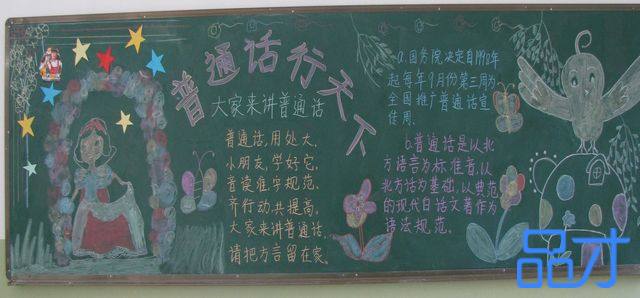 普通话行天下
大家来讲普通话
普通话,用处大,
小朋友,学好它,
音读准,字规范,
齐行动,共提高。
大家来讲普通话,
请把方言留在家。
a.国务院决定自1998年
起每年9月份第三周为
全国推广普通话宣
传周.
b.普通话是以北
方语言为标准音,以
北方话为基础,以典范
的现代白话文著作为
语法规范.
品才